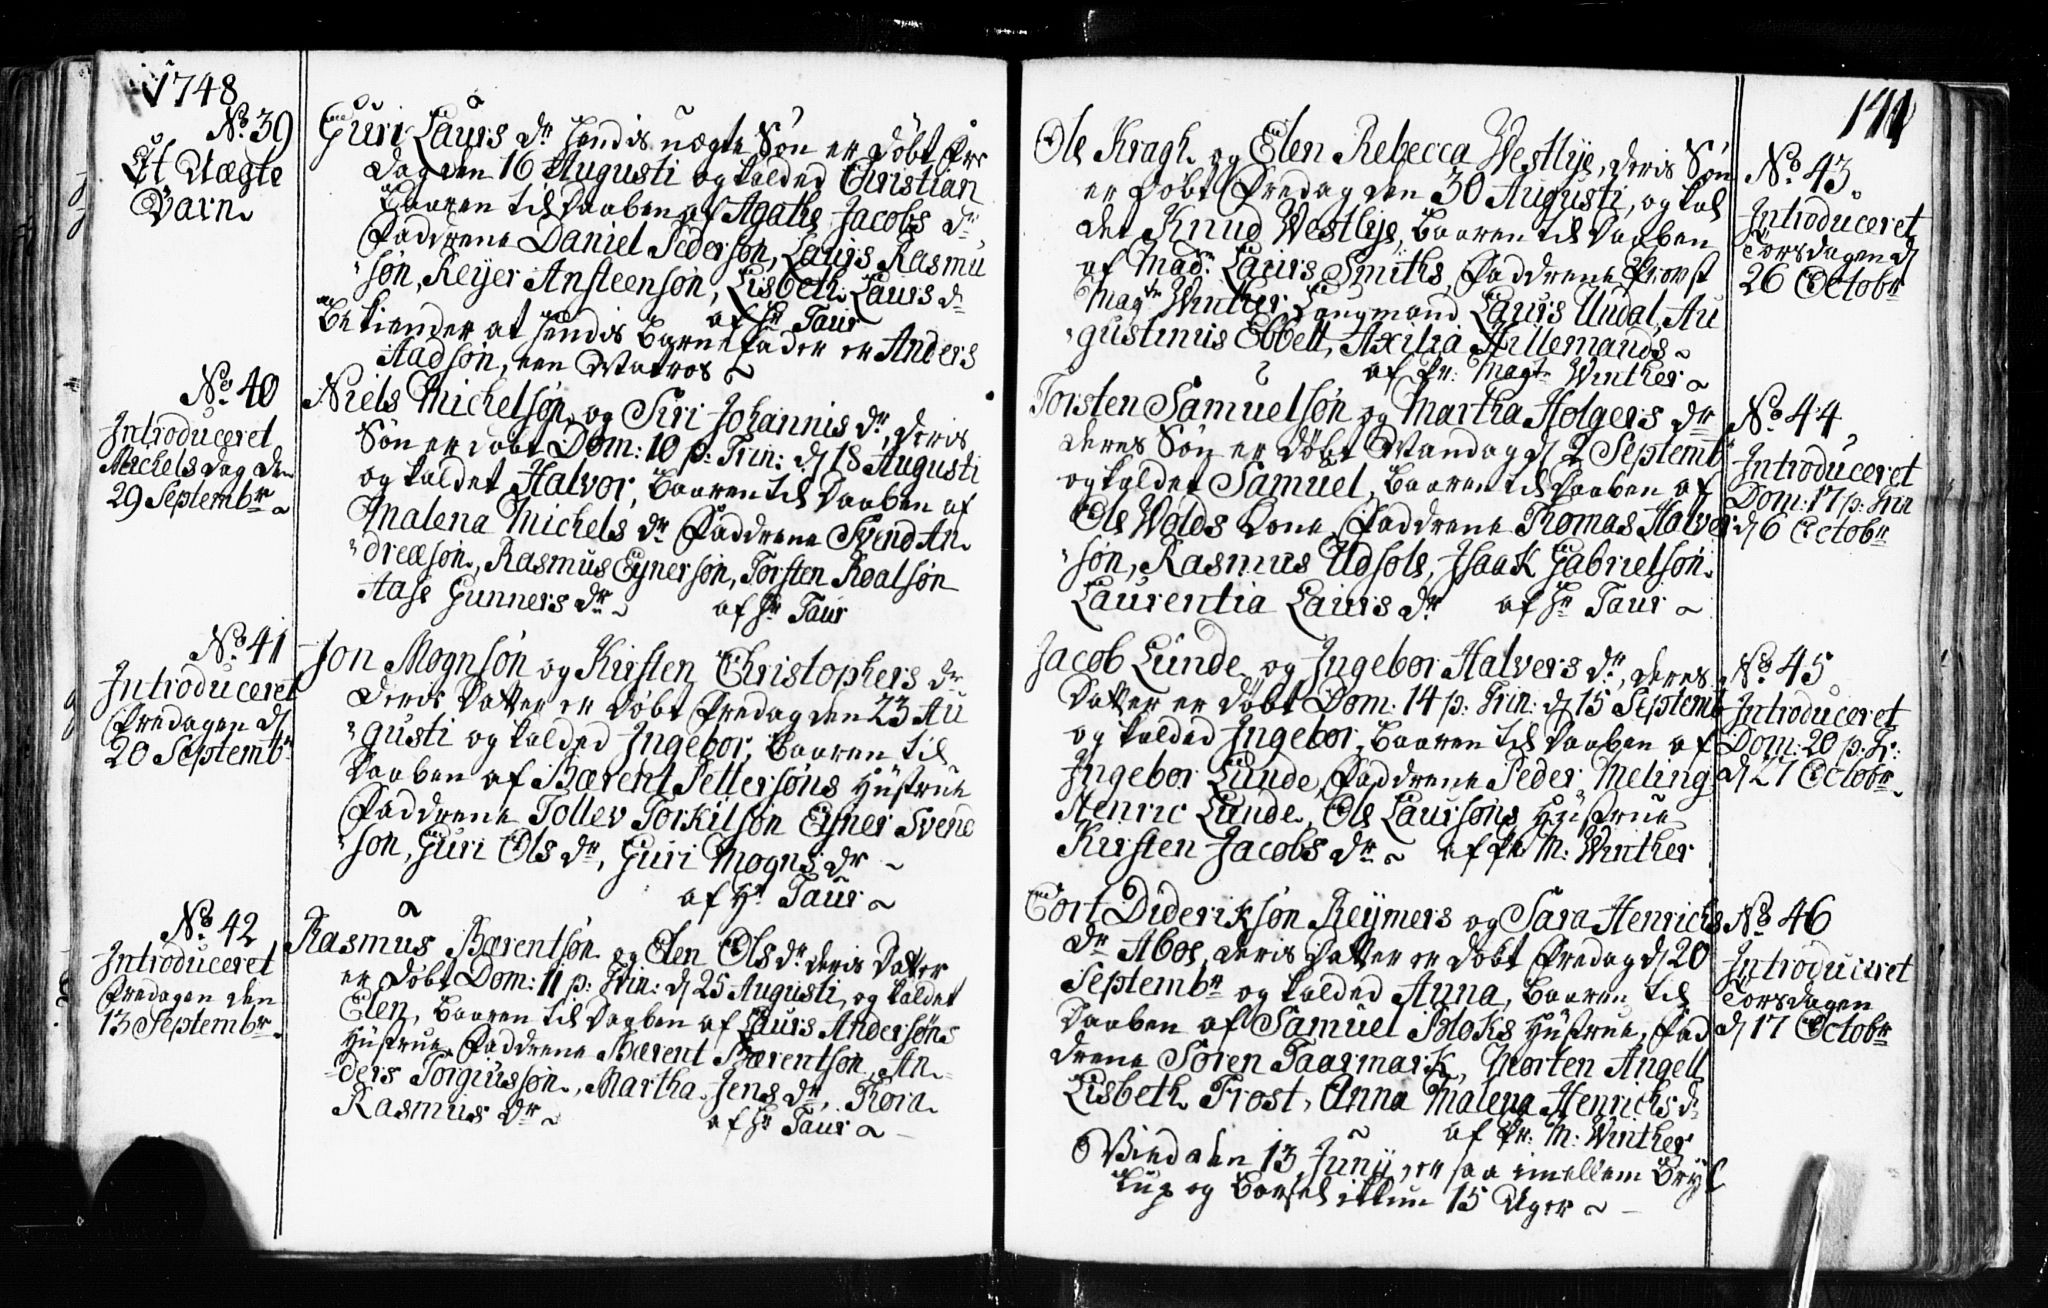 1748
No. 39
Et Uægte
Barn.
Guri Laurs dr hendis uægte Søn er døbt Fre
dag den 16 Augusti og kalded Christian
Baaren til Daaben af Agathe Jacobs dr
Faddrene Daniel Pedersøn, Laurs Rasmu
søn, Reyer Ansteensøn, Lisbeth Laurs dr
af Hr Taur
Bekiender at hendis Barnefader er Anders
Aadsøn, een Matros
No. 40
Introduceret
Michels dag den
29 Septembr
Niels Michelsøn, og Siri Johannis dr, deris
Søn er døbt Dom: 10 p: Trin: d 18 Augusti
og kaldet Halvor, Baaren til Daaben af
Malena Michels dr Faddrene Svend An
dreæsøn, Rasmus Eynersøn, Torsten Roalsøn
Aase Gunners dr af Hr Taur
No. 41
Introduceret
Fredagen d
20 Septembr
Jon Mognsøn og Kirsten Christophers dr
deris Datter er døbt Fredag den 23 Au
gusti og kalded Ingebor, Baaren til
Daaben af Bærent Pettersøns Hustrue
Faddrene Tollev Torkilsøn Eyner Svend
søn, Guri Ols dr, Guri Mogns dr
af Hr Taur
No. 42
Introduceret
Fredagen den
13 Septembr
Rasmus Bærentsøn og Elen Ols dr deris Datter
er døbt Dom: 11 p: Trin: d 25 Augusti, og kaldet
Elen, Baaren til Daaben af Laurs Andersøns
Hustrue, Faddrene Bærent Bærentsøn, An
ders Torgiussøn, Martha Jens dr, Tora
Rasmus dr af Hr Taur
Ole Kragh og Elen Rebecca Westlye, deris Søn
er døbt Fredag den 30 Augusti, og kal
det Knud Westlye, Baaren til Daaben
af Mad. Laurs Smiths, Faddrene Provst
Magtr Winther, Laugmand Laurs Undal, Au
gustinus Ebbell, Axilia Hillemands
af Pr: Magtr Winther
No. 43
Introduceret
Torsdagen d
26 Octobr
Torsten Samuelsøn og Martha Holgers dr
deres Søn er døbt Mandag d 2 Septemb
og kaldet Samuel, Baaren til Daaben af
Ole Wolds Kone, Faddrene Thomas Halvor
søn, Rasmus Udsole, Isaak Gabrielsøn
Laurentia Laurs dr af Hr Taur
No. 44
Introduceret
Dom: 17 p: Trin
d 6 Octobr
Jacob Lunde, og Ingebor Halvers dr, deres
Datter er døbt Dom: 14 p: Trin: d 15 Septemb
og kalded Ingebor, Baaren til Daaben af
Ingebor Lunde, Faddrene Peder Meling
Henric Lunde, Ole Laursøns Hustrue
Kirsten Jacobs dr af Pr. M: Winther
No. 45
Introduceret
Dom: 20 p: Tr:
d 27 Octobr
Cort Dideriksøn Reymers og Sara Henrichs
dr Aboe, deris Datter er døbt Fredag d 20
Septembr og kalded Anna, Baaren til
Daaben af Samuel Bloks Hustrue, Fad
drene Søren Taarmark, Morten Angell
Lisbeth Frost, Anna Malena Henrichs dr
af Pr: M: Winther
Viede den 13 Junij, er saa imellem Bryl
lup og Barsel ickun 15 Uger
No. 46
Introduceret
Torsdagen
d 17 Octobr